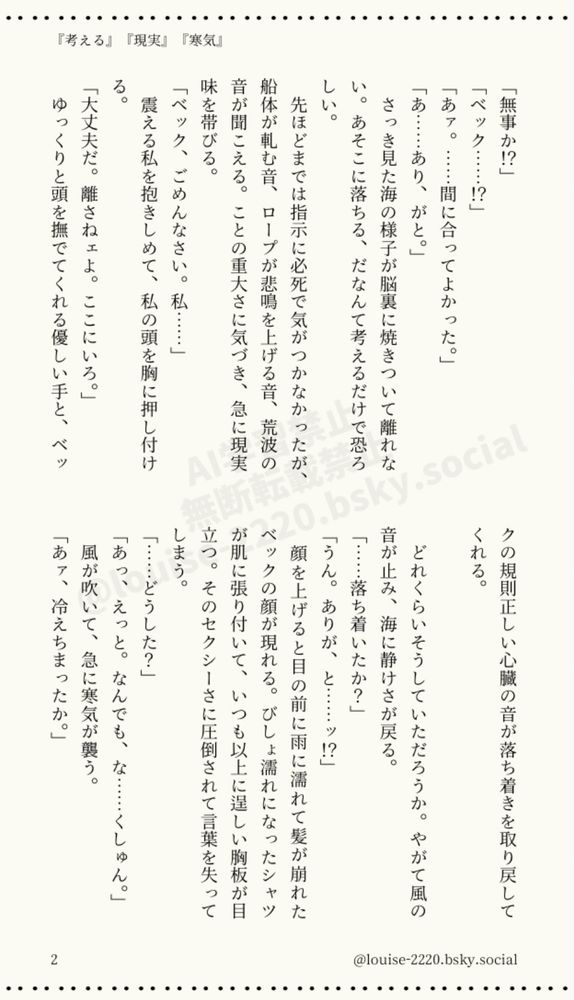 『考える』『現実』『寒気』
「無事か!?」
「ベック……!?」
「あァ。……間に合ってよかった。」
「あ……あり、がと。」
さっき見た海の様子が脳裏に焼きついて離れな
い。あそこに落ちる、だなんて考えるだけで恐ろ
しい。
先ほどまでは指示に必死で気がつかなかったが、
船体が軋む音、ロープが悲鳴を上げる音、荒波の
音が聞こえる。ことの重大さに気づき、急に現実
味を帯びる。
「ベック、ごめんなさい。私……」
震える私を抱きしめて、私の頭を胸に押し付け
る。
「大丈夫だ。離さねェよ。ここにいろ。」
ゆっくりと頭を撫でてくれる優しい手と、ベッ
クの規則正しい心臓の音が落ち着きを取り戻して
くれる。
どれくらいそうしていただろうか。やがて風の
音が止み、海に静けさが戻る。
「……落ち着いたか?」
「うん。ありが、と……ッ!?」
顔を上げると目の前に雨に濡れて髪が崩れた
ベックの顔が現れる。びしょ濡れになったシャツ
が肌に張り付いて、いつも以上に逞しい胸板が目
立つ。そのセクシーさに圧倒されて言葉を失って
しまう。
「……どうした?」
「あっ、えっと。なんでも、な……くしゅん。」
風が吹いて、急に寒気が襲う。
「あァ、冷えちまったか。」
AI学習禁止
無断転載禁止
@louise-2220.bsky.social
2
@louise-2220.bsky.social